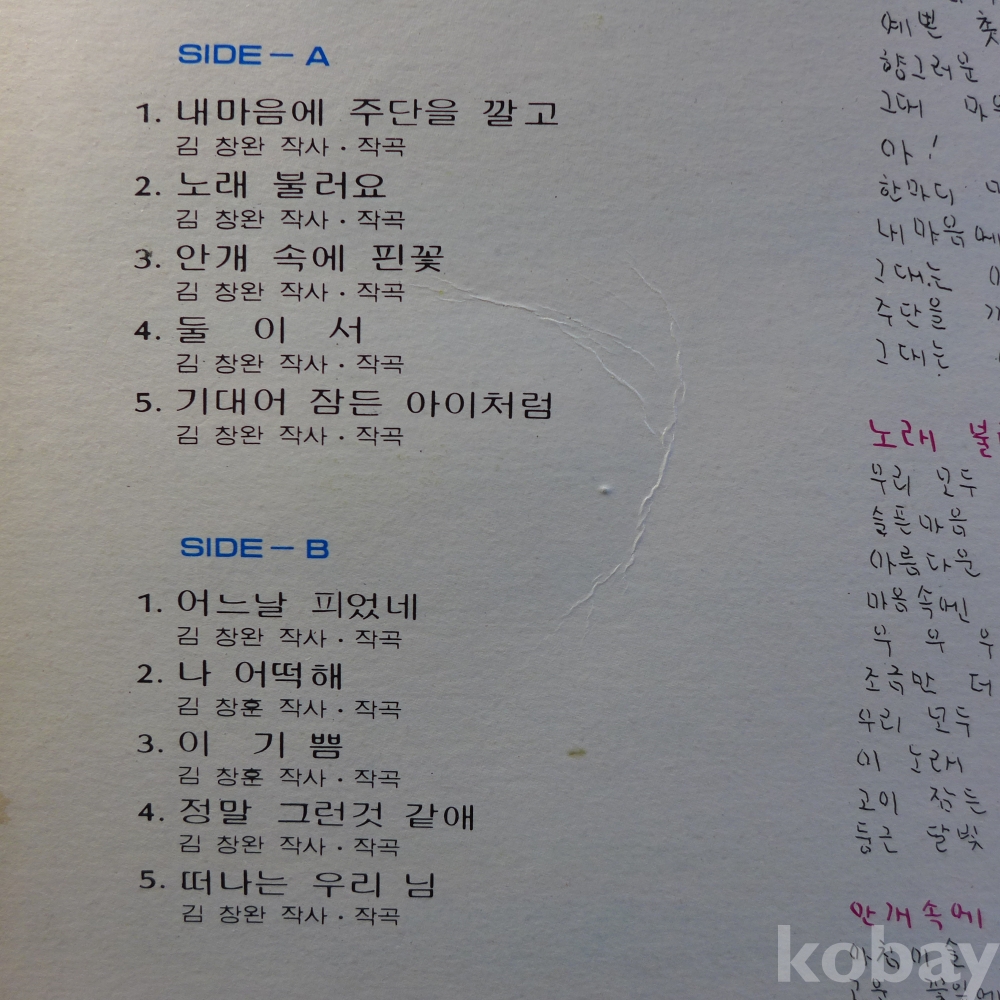 SIDE – A
1. 내마음에 주단을 깔고
김 창완 작사 · 작곡
2. 노래 불러요
김 창완 작사 · 작곡
3. 안개 속에 핀꽃
김 창완 작사 · 작곡
4. 둘 이 서
김 창완 작사 · 작곡
5. 기대어 잠든 아이처럼
김 창완 작사 · 작곡
SIDE – B
1. 어느날 피었네
김 창완 작사 · 작곡
2. 나 어떡해
김 창훈 작사 · 작곡
3. 이 기 쁨
김 창훈 작사 · 작곡
4. 정말 그런것 같애
김 창완 작사 · 작곡
5. 떠나는 우리 님
김 창완 작사 · 작곡
예쁜
향그러운
그대
아!
한마디
내마음에
그대는
주단을
그대는
노래
우리 모두
슬픈마음
아름다운
마음속엔
우 우 우
조금만 더
우리 모두
이 노래
고이 잠든
둥근 달빛
안개속에
kobay